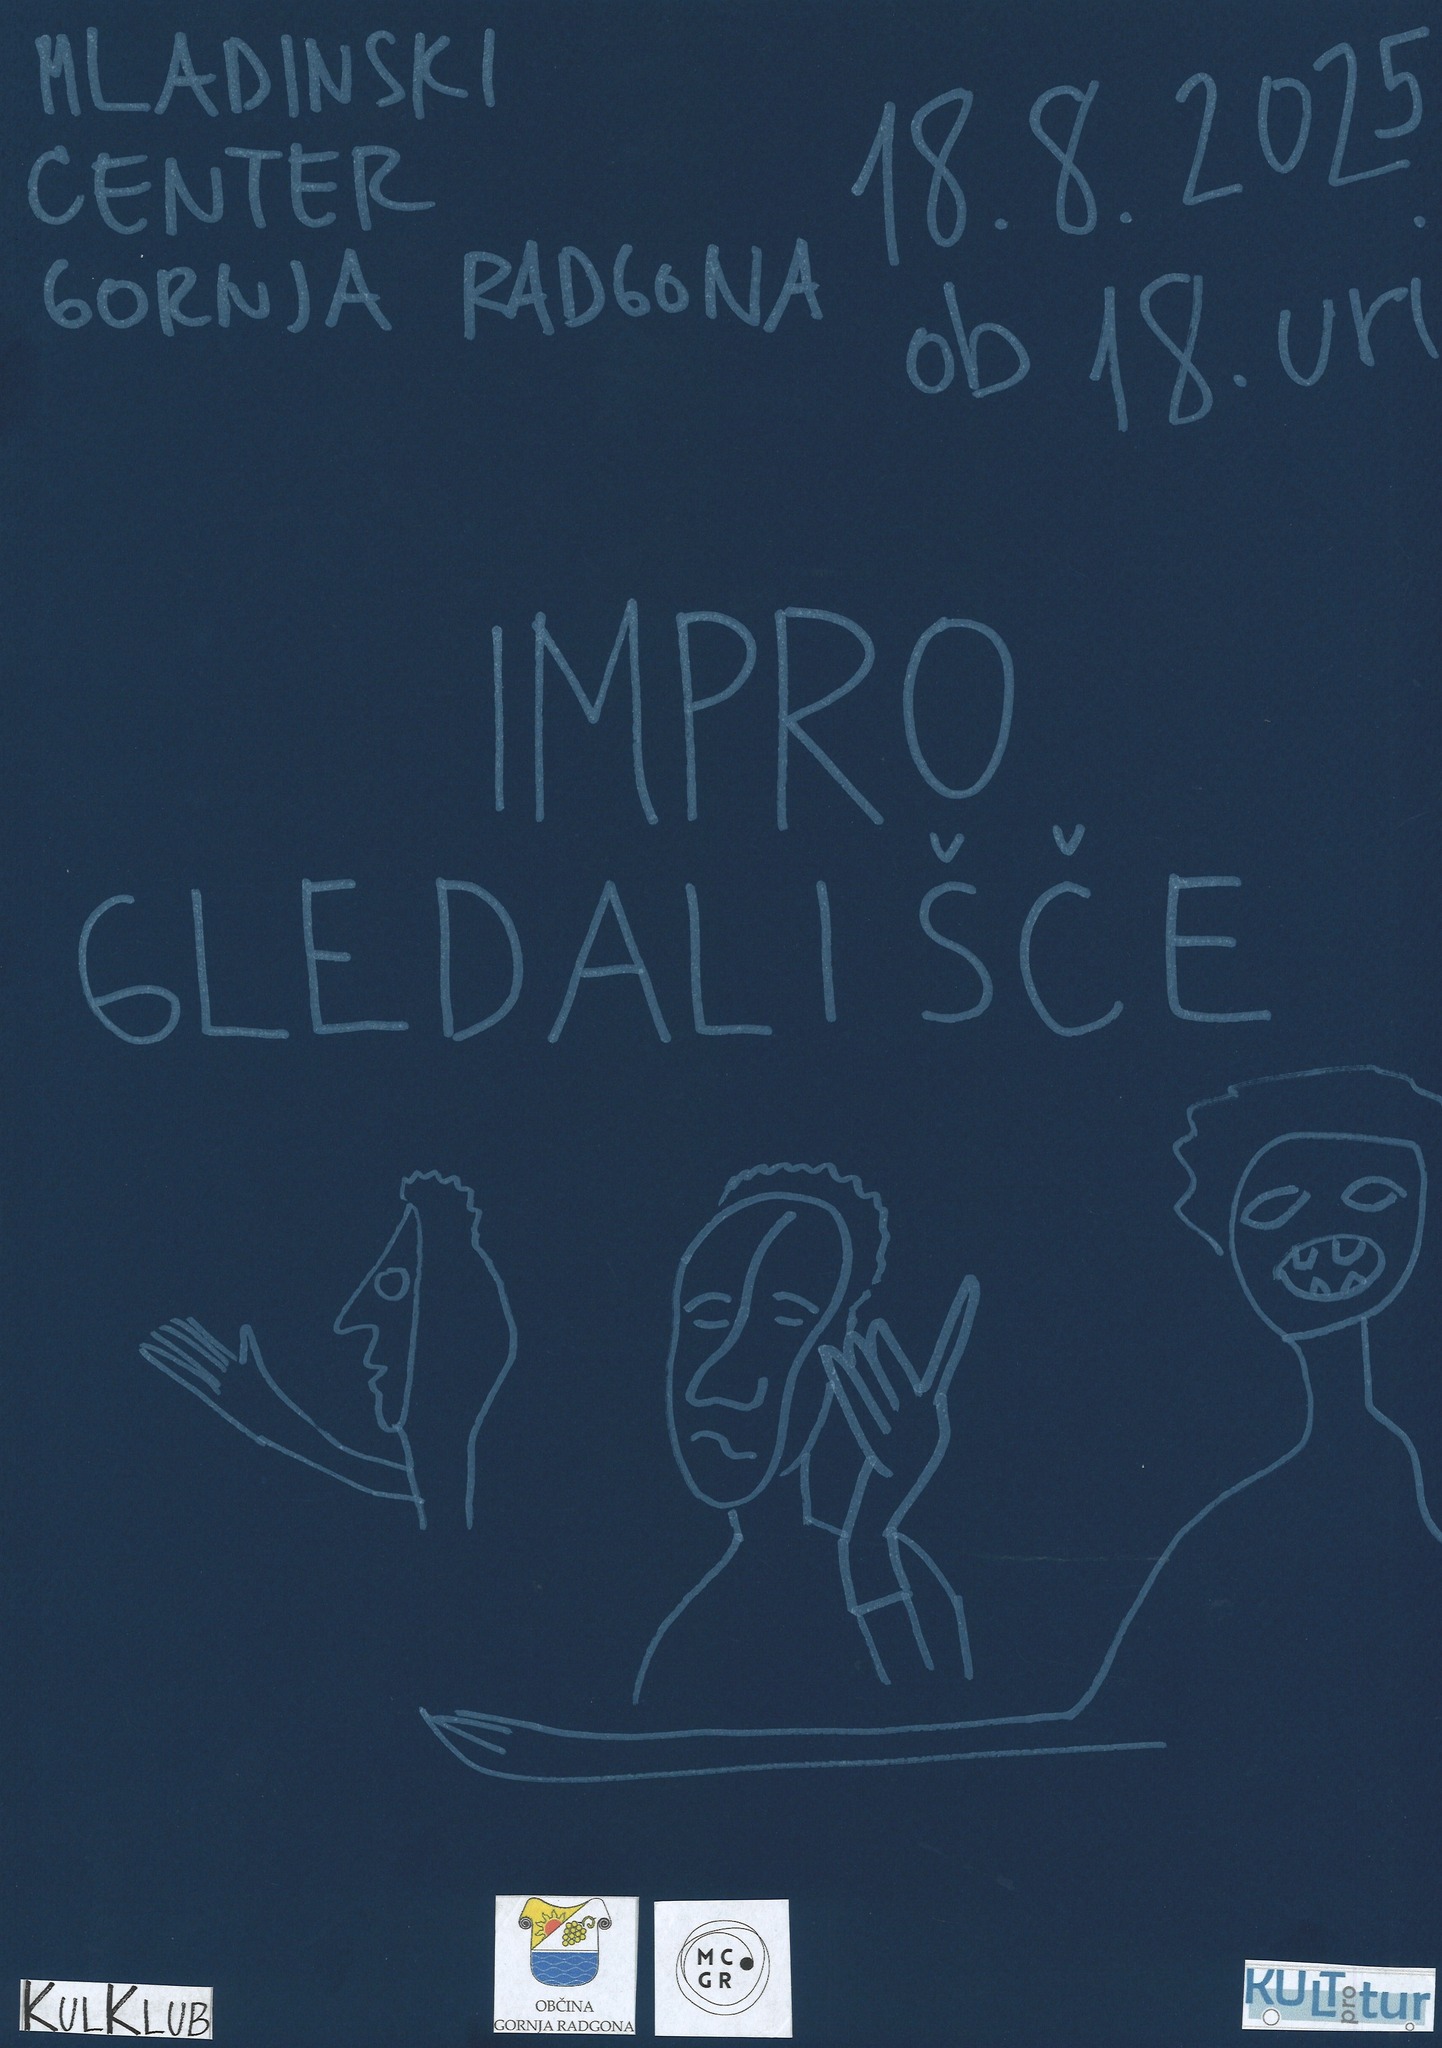 MLADINSKI
CENTER
GORNJA RADGONA
18.8.2025.
ob 18. uri
IMPRO
GLEDALIŠČE
KULKLUB
OBČINA
GORNJA RADGONA
MC
GR
KULTprotur